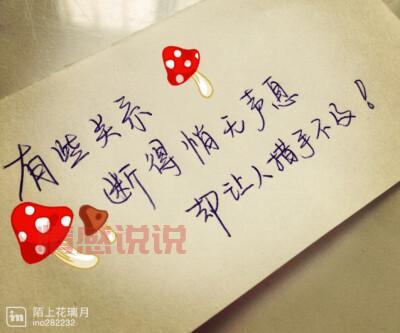 有些关系
断得悄无声息
却让人措手不及！
情感说说
陌上花璃月
in
ino282232